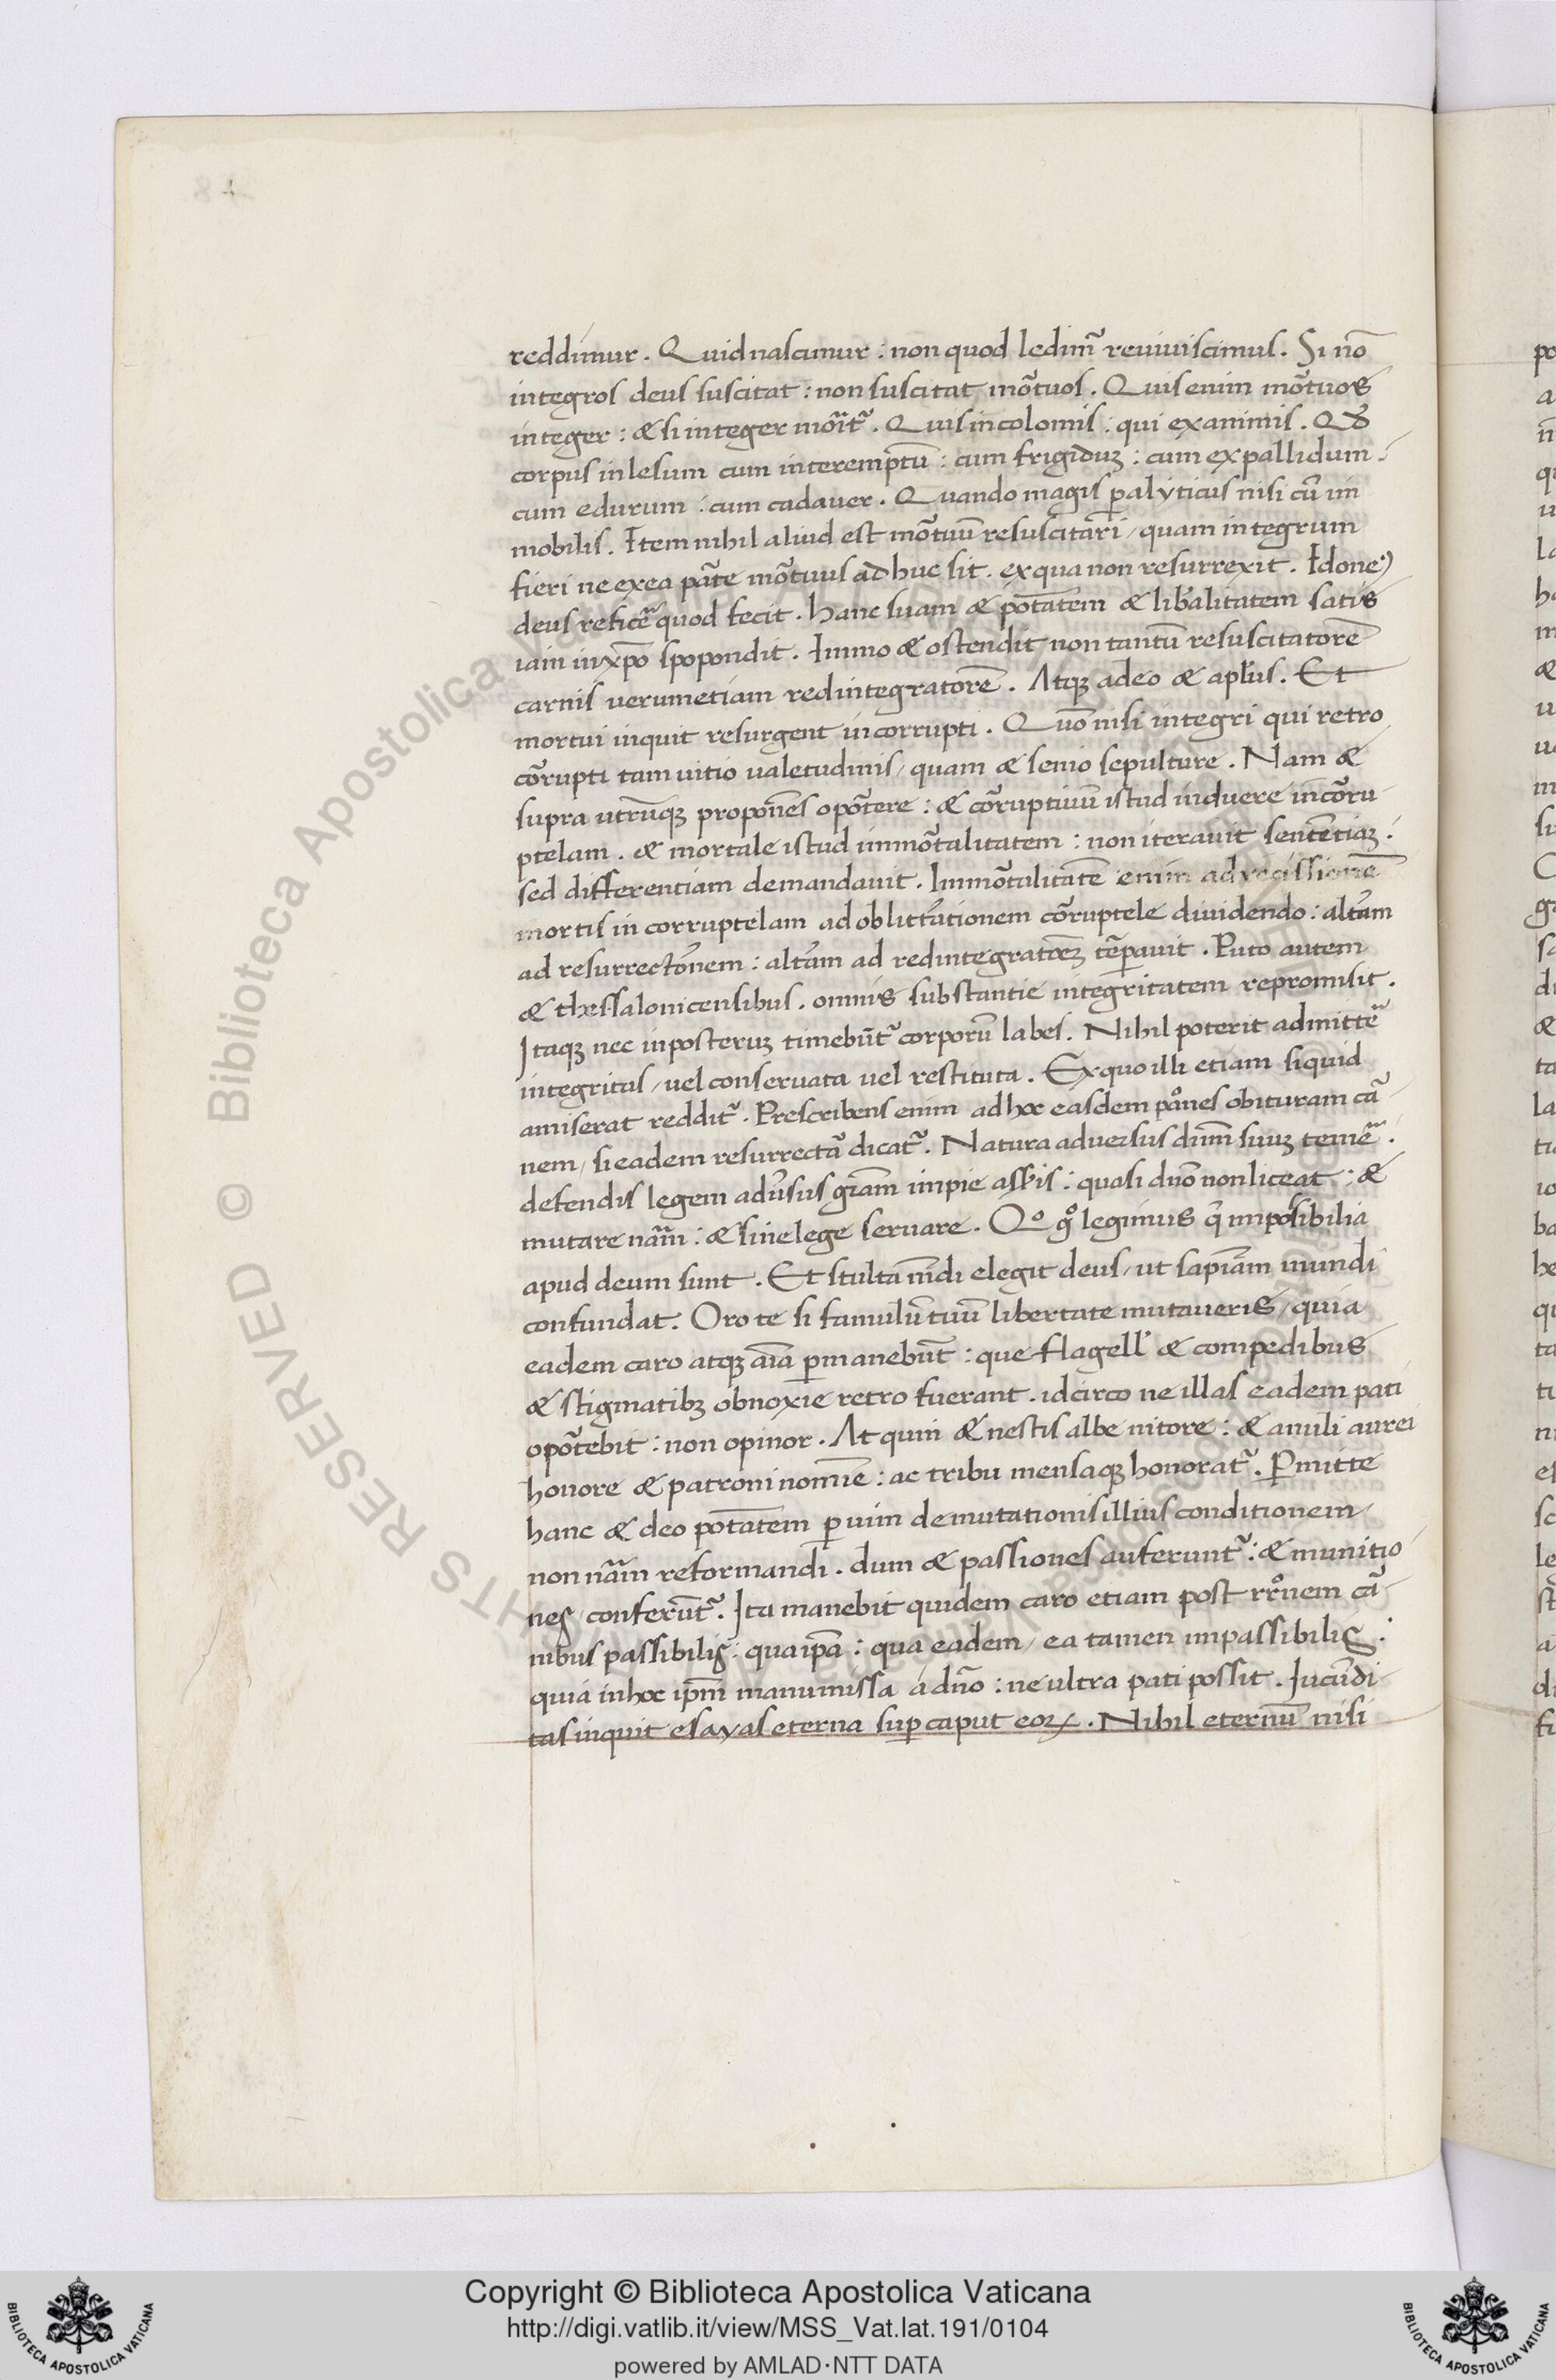 reddimur. Quid nascimur: non quod ledimr̃ reviviscimus. Si nõ
integros deus suscitat: non suscitat mõtuos. Quis enim mõtuos
integer: & si integer morit̃. Quis incolomis: qui exanimis. Qd̃
corpus inlesum cum interemptũ: cum frigiduꝫ: cum expallidum:
cum edurum: cum cadaver. Quando magis ꝑalyticus nisi cũ im
mobilis. Item nihil aliud est mõtuũ resuscitari / quam integrum
fieri ne ex ea pãte mõtuus ad huc sit. ex qua non resurrexit. Idone9
deus reficẽ quod fecit. hanc suam & põtatem & libalitatem satis
iam in xp̃o spopondit. Immo & ostendit non tantũ resuscitatorẽ
carnis verumetiam redintegratorẽ. Atqꝫ adeo & apl̃us. Et
mortui inquit resurgent incorrupti. Quõ nisi integri qui retro
cõrupti tam vitio valetudinis / quam & senio sepulture. Nam &
supra utrũqꝫ proponẽs opõtere: & cõruptivũ istud induere incõru
ptelam. & mortale istud immõtalitatem: non iteravit sentẽtiaꝫ:
sed differentiam demandavit. Immõtalitatẽ enim ad
mortis in corruptelam ad oblitt̃ationem cõruptele dividendo: alt̃am
ad resurrectõnem: alt̃am ad redintegratõeꝫ tẽꝑavit. Puto autem
& thessalonicensibus. omnis substantie integritatem repromisit.
Itaqꝫ nec inposteruꝫ timebũt̃ corporũ labes. Nihil poterit admittẽ
integritas / vel conservata vel restituta. Ex quo illi etiam siquid
amiserat reddit̃. Prescribens enim ad hoc easdem põnes obituram cã
nem / si eadem resurrectã dicat̃. Natura adversus dñm suuꝫ temẽ.
defendis legem adṽsus gr̃am impie asẽis: quasi dnõ non liceat: &
mutare nãm: & sine lege servare. Qº gº legimus q̃ impossibilia
apud deum sunt. Et stulta mũdi elegit deus / ut sapiãm mundi
confundat. Oro te si famulũ tuũ libertate mutaveris / quia
eadem caro atqꝫ aĩa ꝑmanebũt: que flagell' & compedibus
& stigmatibꝫ obnoxie retro fuerant. idcirco ne illas eadem pati
opõtebit: non opinor. Atquin & nestis albe nitore: & anuli aurei
honore & patroni nomĩe: ac tribu mensaqꝫ honorat̃. Ꝑmitte
hanc & deo põtatem ꝑ vim demutationis illius conditionem /
non nãm reformandi. dum & passiones auferunt̃: & munitio
nes conferũt̃. Ita manebit quidem caro etiam post rr̃onem cã
nibus passibilis: qua ip̃a: qua eadem / ea tamen impassibilis:
quia in hoc ip̃m manumissa a dño: ne ultra pati possit. Iucũdi
tas inquit esayas eterna suꝑ caput eoꝝ. Nihil eternũ nisi
Copyright © Biblioteca Apostolica Vaticana
http://digi.vatlib.it/view/MSS_Vat.lat.191/0104
powered by AMLAD·NTT DATA